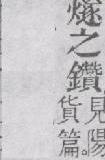 燧之鑽
見陽
貨篇。